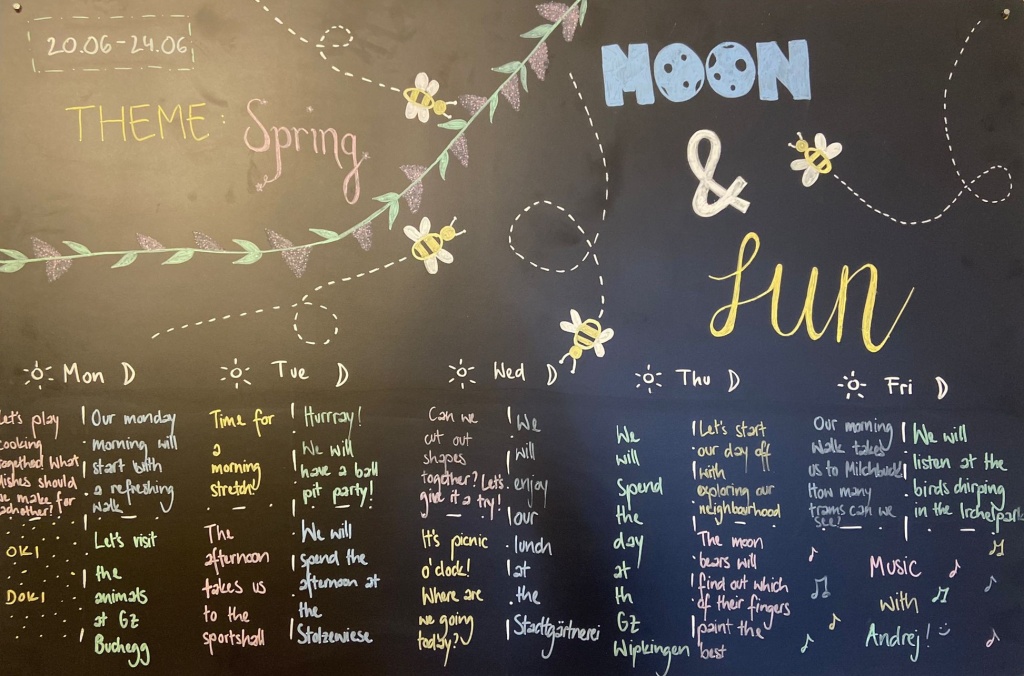 20.06-24.06
THEME: Spring
MOON
&
Sun
Mon
Let's play
cooking
together! What
dishes should
we make for
OKI
DOKI
Our monday
morning will
start with
a refreshing
walk
Let's visit
the
animals
at GZ
Buchegg
Tue
Time for
a
morning
stretch!
The
afternoon
takes us
to the
sportshall
Hurrray!
We will
have a ball
pit party!
We will
spend the
afternoon at
the
Stolzewiese
Wed
Can we
cut out
shapes
together? Let's
give it a try!
It's picnic
o'clock!
Where are
we going
today?
We
will
enjoy
our
lunch
at
the
Stadtgärtnerei
Thu
We
will
Spend
the
day
at
th
GZ
Wipkingen
Let's start
our day off
with
exploring our
neighbourhood
The moon
bears will
find out which
of their fingers
paint the
best
Fri
Our morning
walk takes
us to Milchbuck!
How many
trams can we
see?
We will
listen at the
birds chirping
in the Irchelpark
Music
with
Andrej!